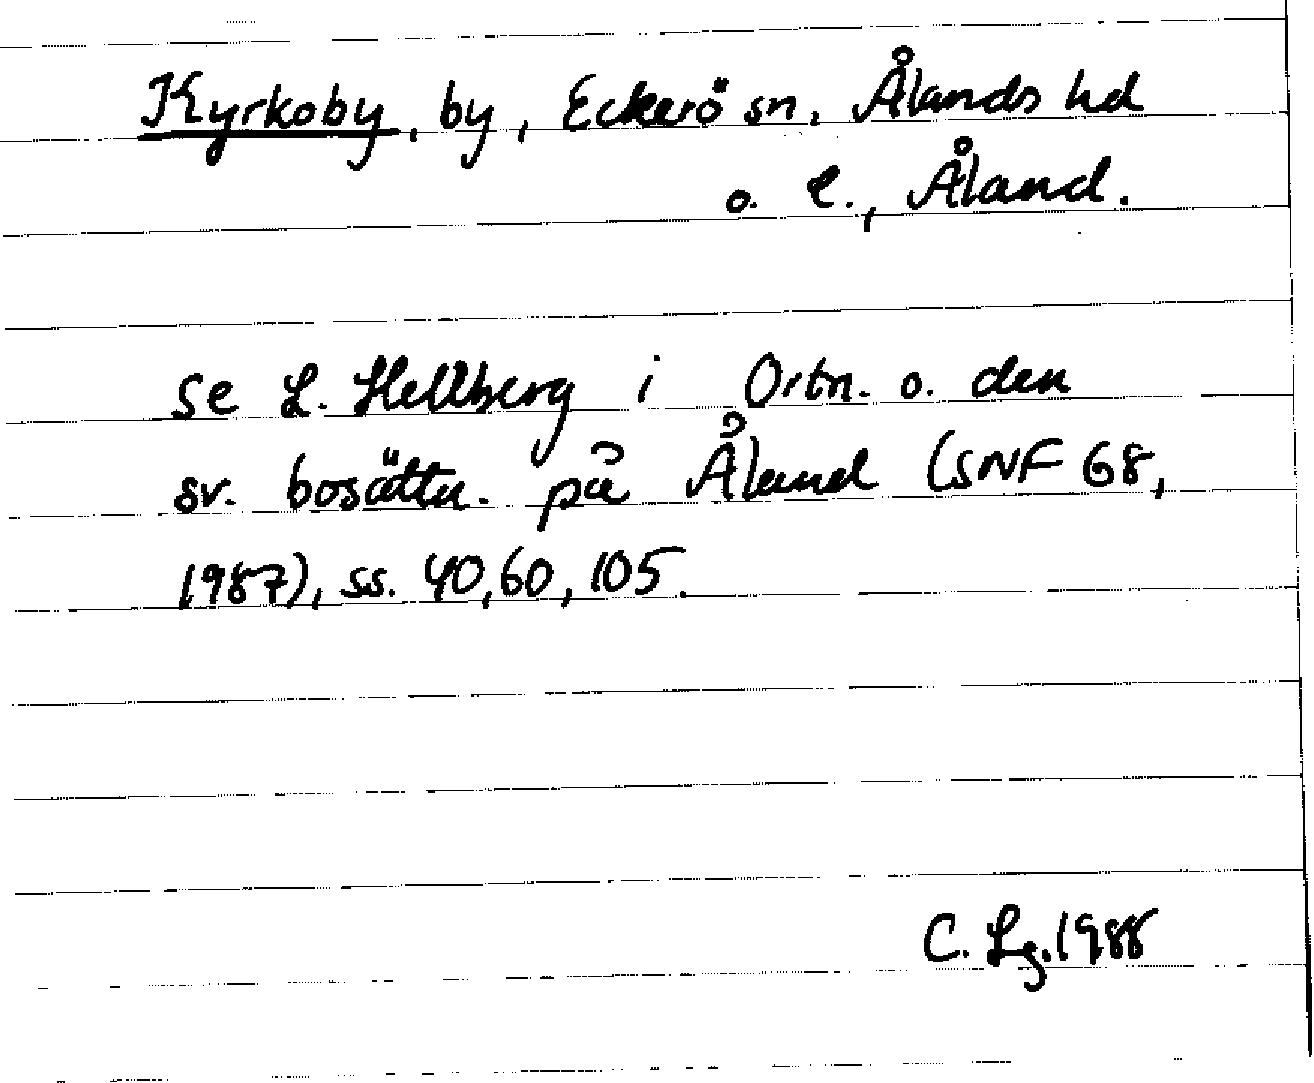 Kyrkoby, by, Eckerö sn, Ålands hd
o. l., Åland.
se L. Hellberg i Ortn. o. den
sv. bosättn. på Åland (SNF 68,
1987), ss. 40, 60, 105.
C. Lg. 1988